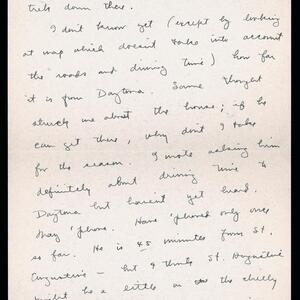 trek down there.
I don't know yet (except by looking
at map which doesn't take into account
the roads and driving time) how far
it is from Daytona. Same thought
struck me about the house; if he
can get there, why don't I take
for the season. I wrote asking him
definitely about driving time to
Daytona but haven't yet heard.
May 'phone. Have 'phoned only once
so far. He is 45 minutes from St.
Augustine — but I think St. Augustine
might be a little on the chilly